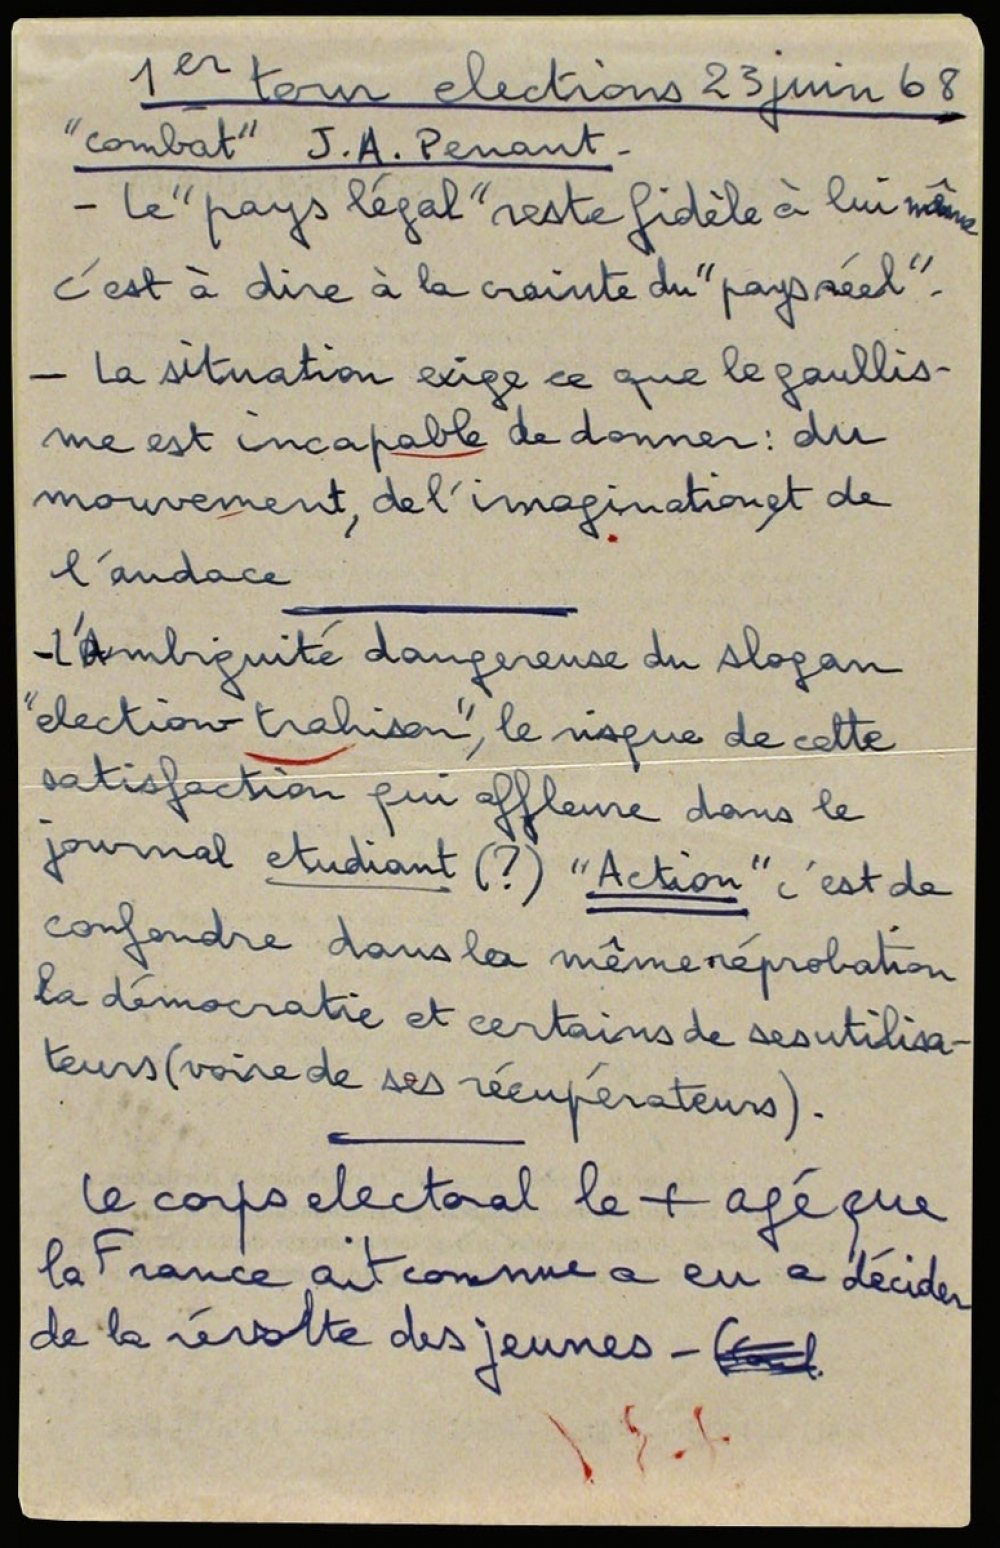 1er tour elections 23 juin 68
"combat" J.A. Penant -
- Le "pays légal" reste fidèle à lui même
c'est à dire à la crainte du "pays réel" -
- La situation exige ce que le gaullis-
me est incapable de donner : du
mouvement, de l'imagination, et de
l'audace
- L'Ambiguité dangereuse du slogan
"election-trahison", le risque de cette
satisfaction qui affleure dans le
journal etudiant (?) "Action" c'est de
confondre dans la même réprobation
la démocratie et certains de ses utilisa-
teurs (voire de ses récupérateurs).
Le corps electoral le + agé que
la France ait connue a eu a décider
de la révolte des jeunes -